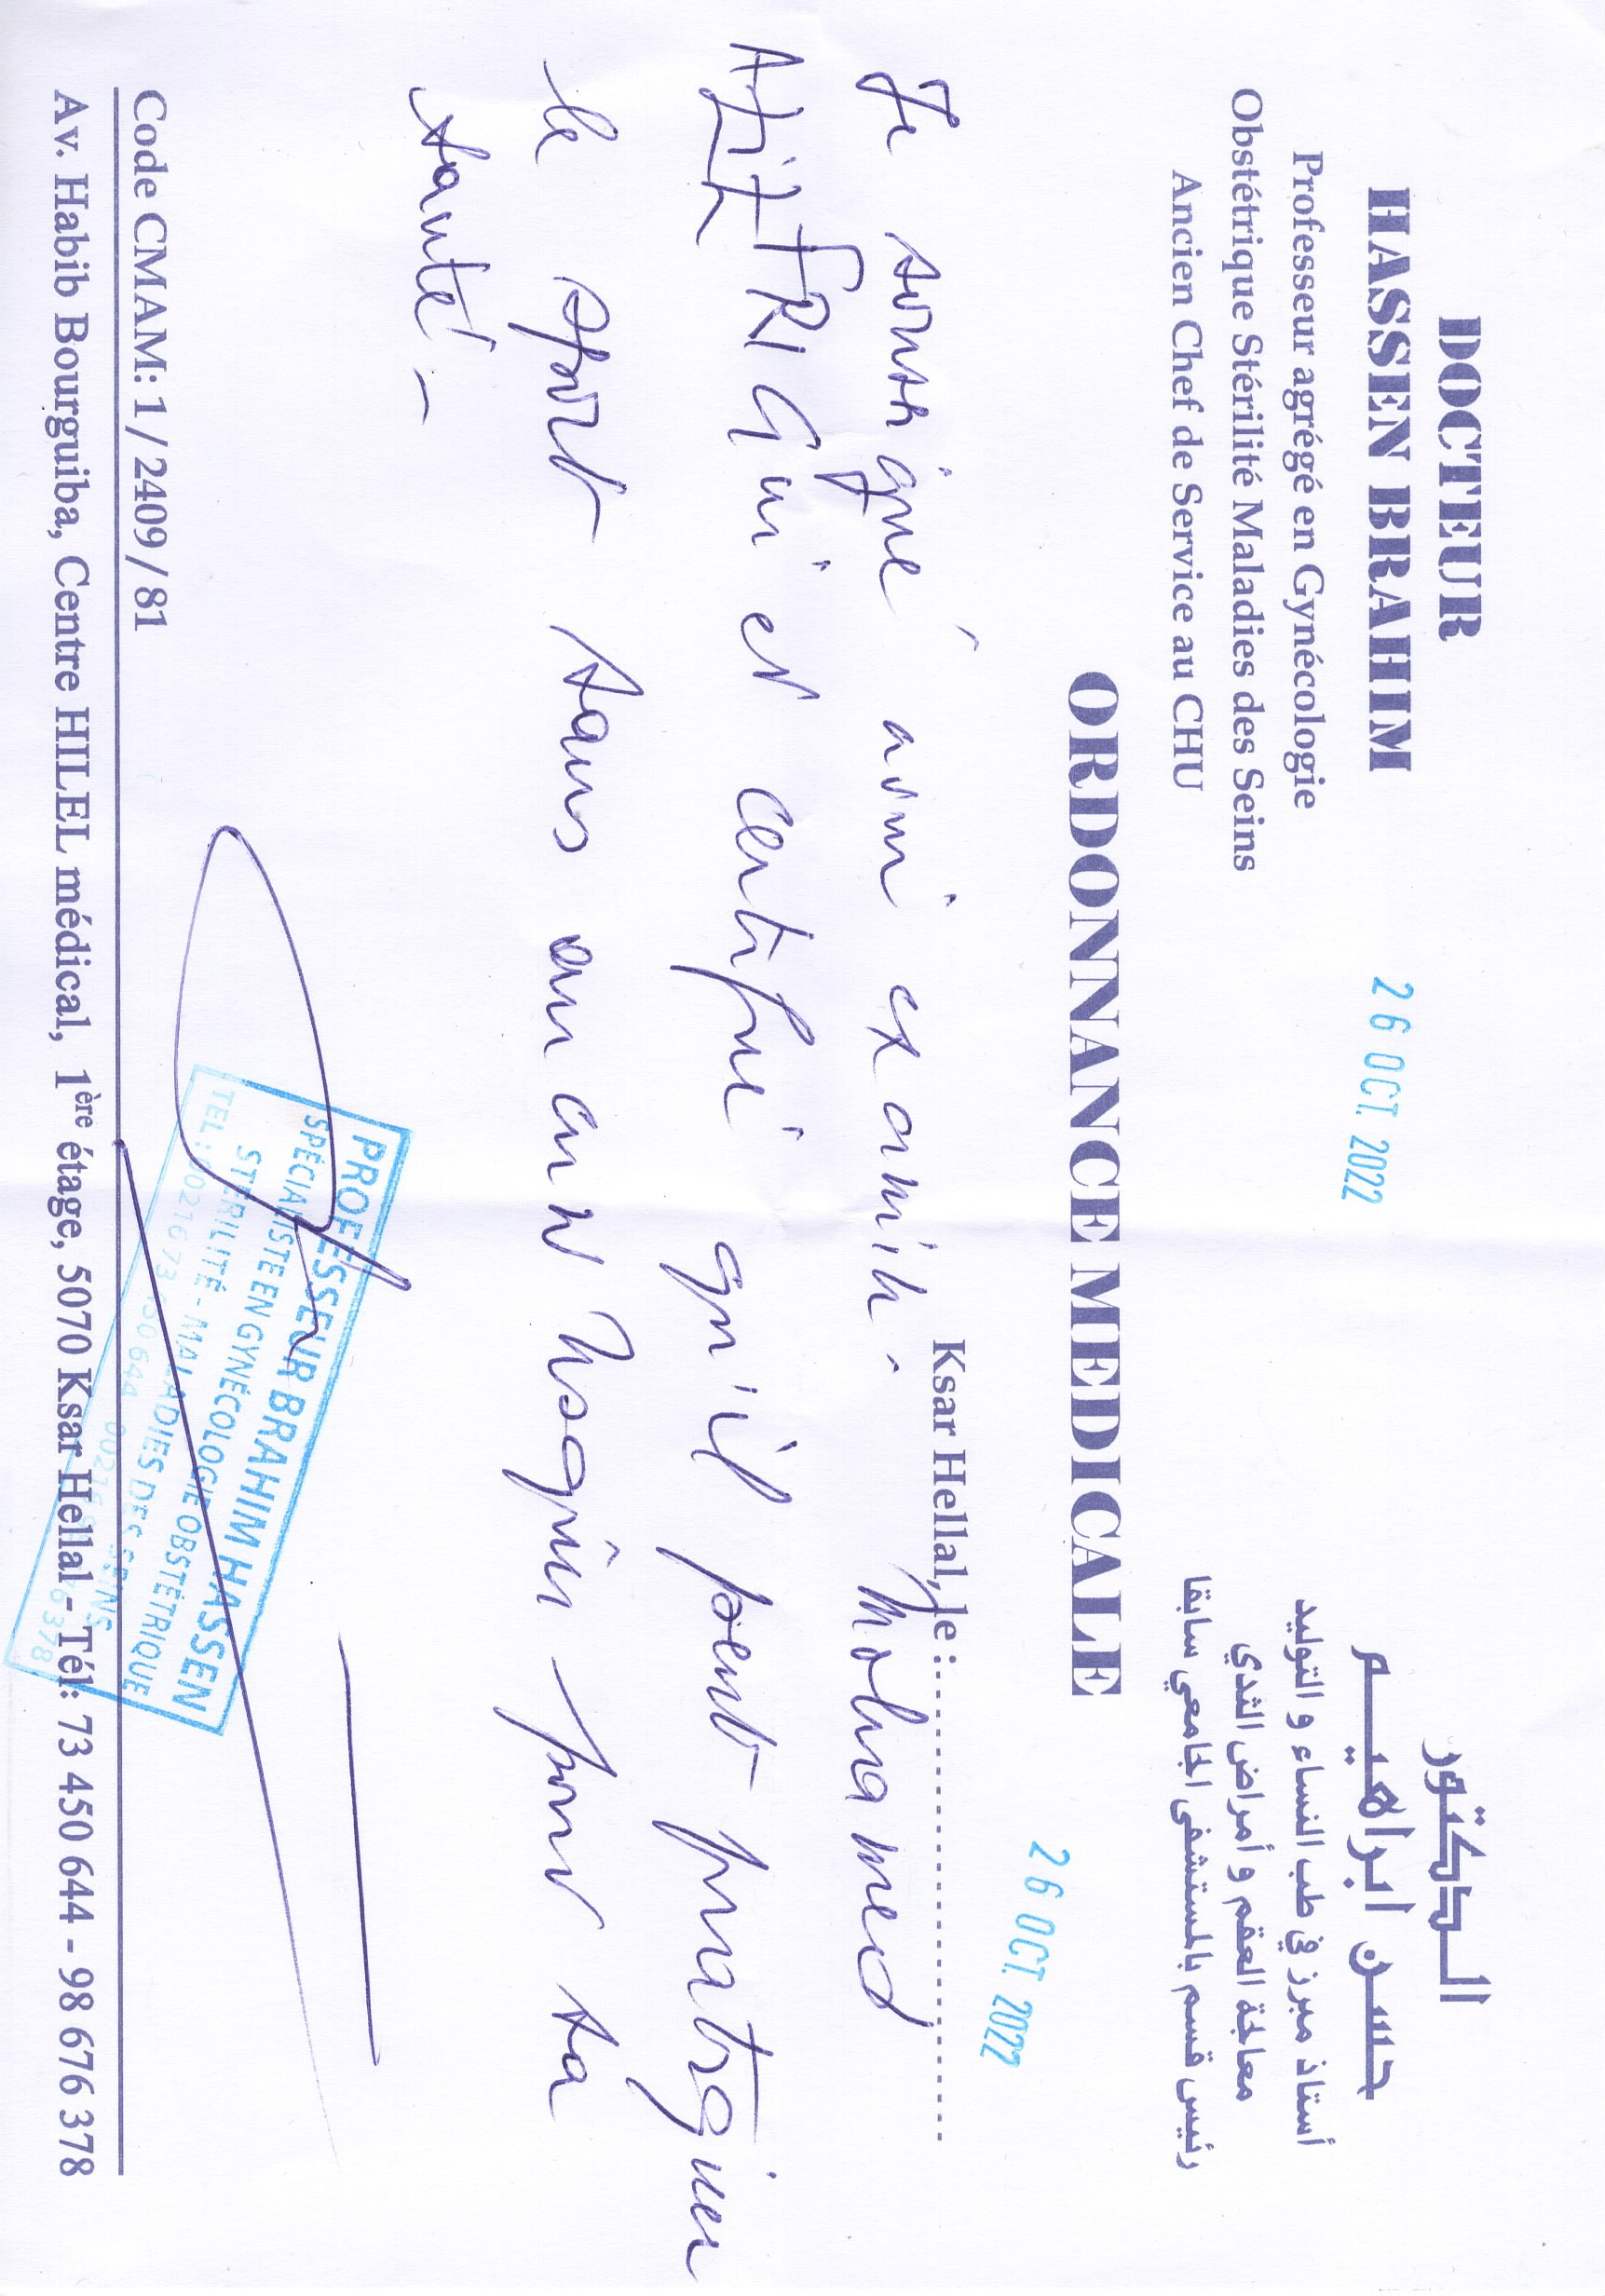 DOCTEUR
HASSEN BRAHIM
Professeur agrégé en Gynécologie
Obstétrique Stérilité Maladies des Seins
Ancien Chef de Service au CHU
26 OCT. 2022
الدكتور
حسن ابراهيم
أستاذ مبرز في طب النساء و التوليد
معالجة العقم و أمراض الثدي
رئيس قسم بالمستشفى الجامعي سابقا
ORDONNANCE MEDICALE
26 OCT. 2022
Ksar Hellal, le :
Je soussigné avoir examiné Mohamed
AZIZ FRIGUI et certifie qu'il peut pratiquer
le sport sans aucun risque pour sa
santé. -
PROFESSEUR BRAHIM HASSEN
SPÉCIALISTE EN GYNÉCOLOGIE OBSTÉTRIQUE
STÉRILITÉ - MALADIES DES SEINS
Code CMAM: 1 / 2409 / 81
Av. Habib Bourguiba, Centre HILEL médical, 1ère étage, 5070 Ksar Hellal - Tél: 73 450 644 - 98 676 378